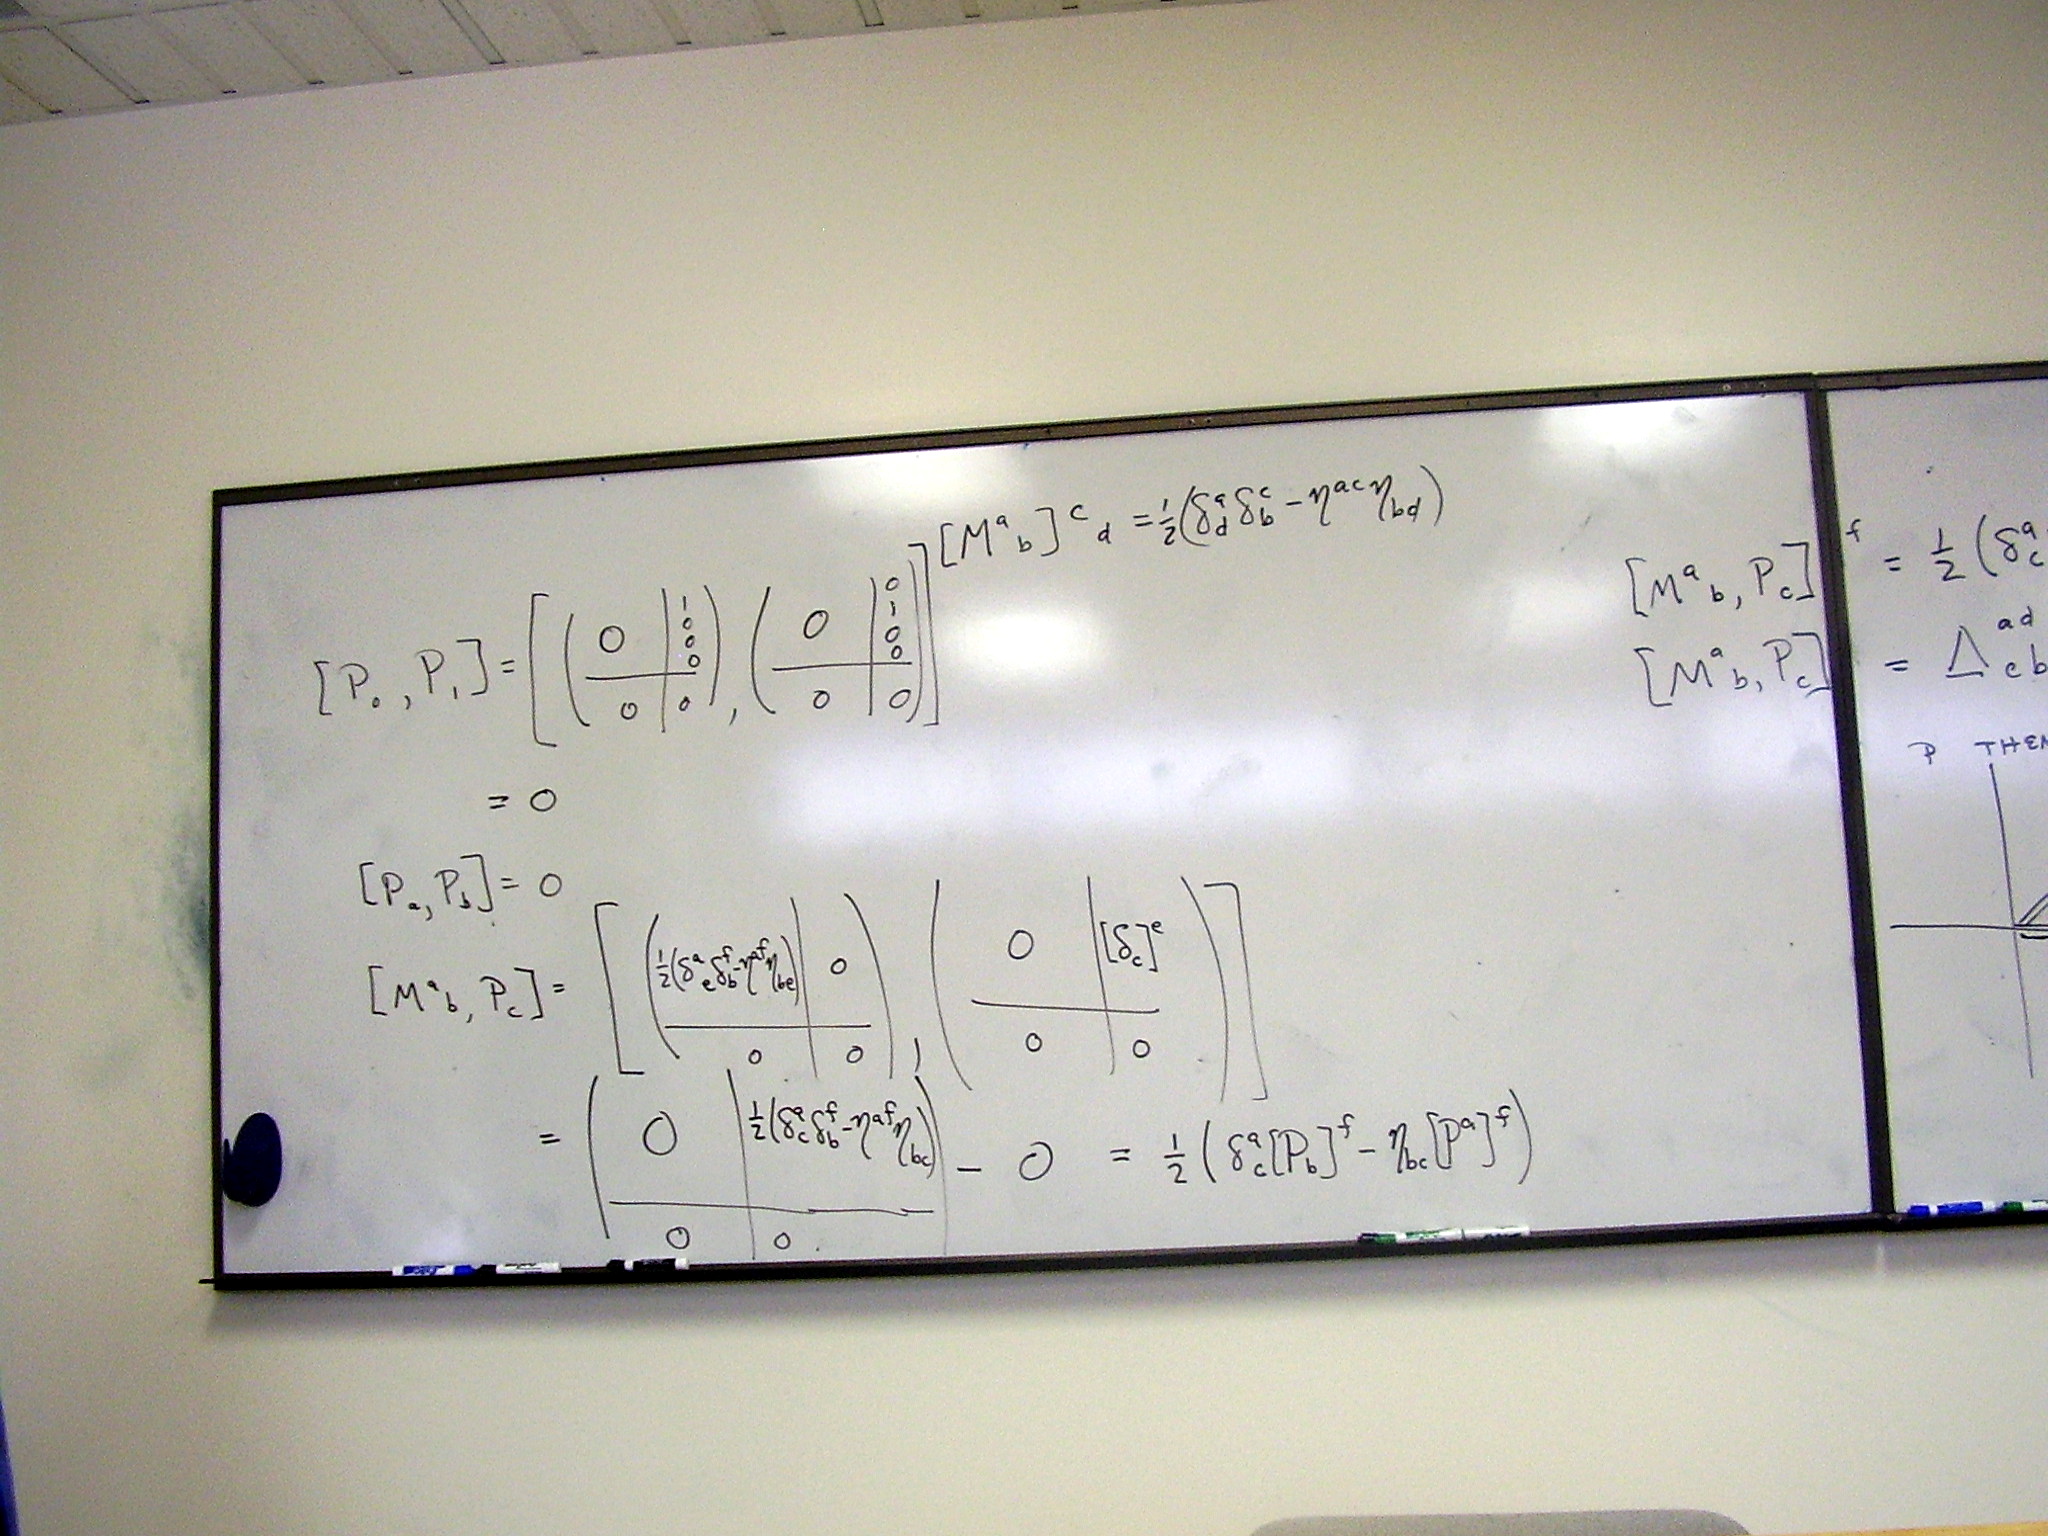 [Mᵃ_b]ᶜ_d = ½(δᵃ_d δᶜ_b − ηᵃᶜ η_bd)
[P₀, P₁] = [ ( 0 | 1 0 0 0 / 0 | 0 ), ( 0 | 0 1 0 0 / 0 | 0 ) ]
= 0
[P_a, P_b] = 0
[Mᵃ_b, P_c] = [ ( ½(δᵃ_e δᶠ_b − ηᵃᶠ η_be) | 0 / 0 | 0 ), ( 0 | [δ_c]ᵉ / 0 | 0 ) ]
= ( 0 | ½(δᵃ_c δᶠ_b − ηᵃᶠ η_bc) / 0 | 0 ) − 0 = ½(δᵃ_c [P_b]ᶠ − η_bc [Pᵃ]ᶠ)
[Mᵃ_b, P_c]ᶠ = ½(δᵃ_c
[Mᵃ_b, P_c] = Δᵃᵈ_cb
P THEN